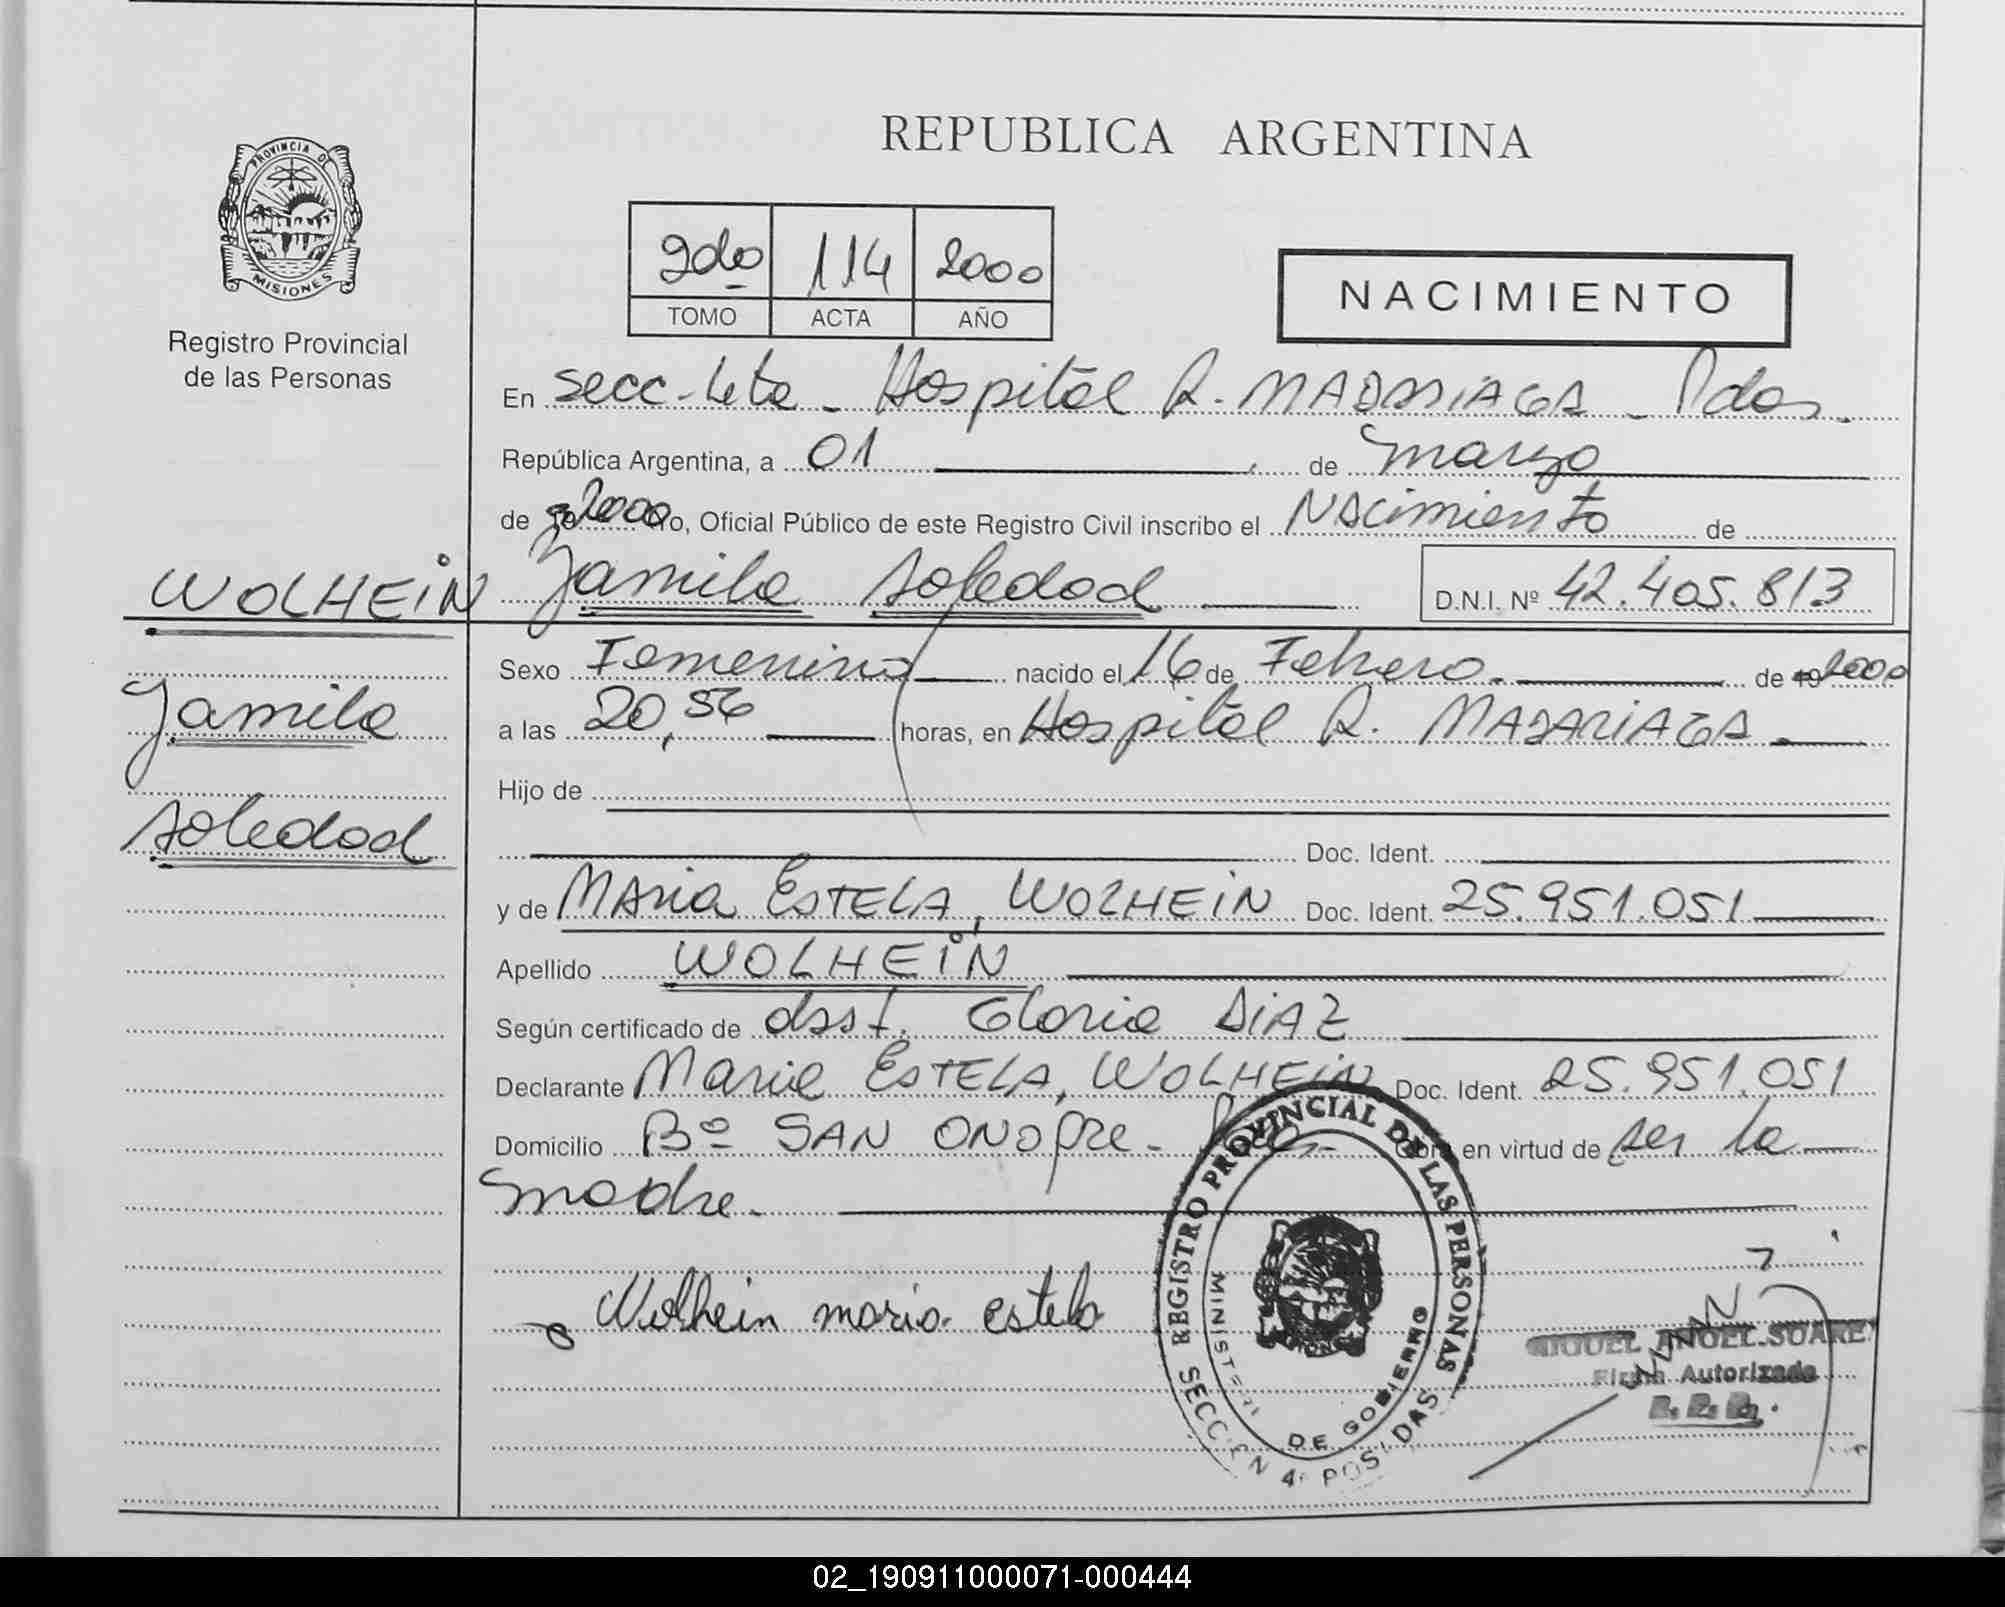 REPUBLICA ARGENTINA
PROVINCIA DE
MISIONES
Registro Provincial
de las Personas
2do 114 2000
TOMO ACTA AÑO
NACIMIENTO
En secc. 4ta - Hospital R. MADARIAGA - Pdas.
República Argentina, a 01 de marzo
de 2000 Yo, Oficial Público de este Registro Civil inscribo el NAcimiento de
WOLHEIN
Yamila Soledad D.N.I. Nº 42.405.813
Yamila
Soledad
Sexo Femenino nacido el 16 de Febrero. de 19 2000
a las 20,56 horas, en Hospital R. MADARIAGA.
Hijo de
Doc. Ident.
y de MAria ESTELA, WOLHEIN Doc. Ident. 25.951.051
Apellido WOLHEIN
Según certificado de obst. Gloria DIAZ
Declarante Maria ESTELA, WOLHEIN Doc. Ident. 25.951.051
Domicilio Bº SAN ONOFRE - Obra en virtud de ser la
madre.
Wolhein maria estela
REGISTRO PROVINCIAL DE LAS PERSONAS
MINISTERI DE GOBIERNO
SECCION 4ª POSADAS
MIGUEL ANGEL SUAREZ
Firma Autorizada
02_190911000071-000444